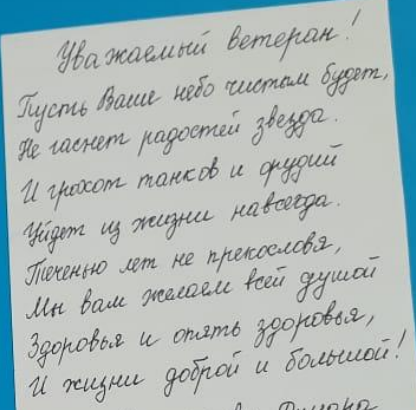 Уважаемый ветеран!
Пусть Ваше небо чистым будет,
Не гаснет радостей звезда.
И грохот танков и орудий
Уйдет из жизни навсегда.
Теченью лет не прекословя,
Мы вам желаем всей душой
Здоровья и опять здоровья,
И жизни доброй и большой!